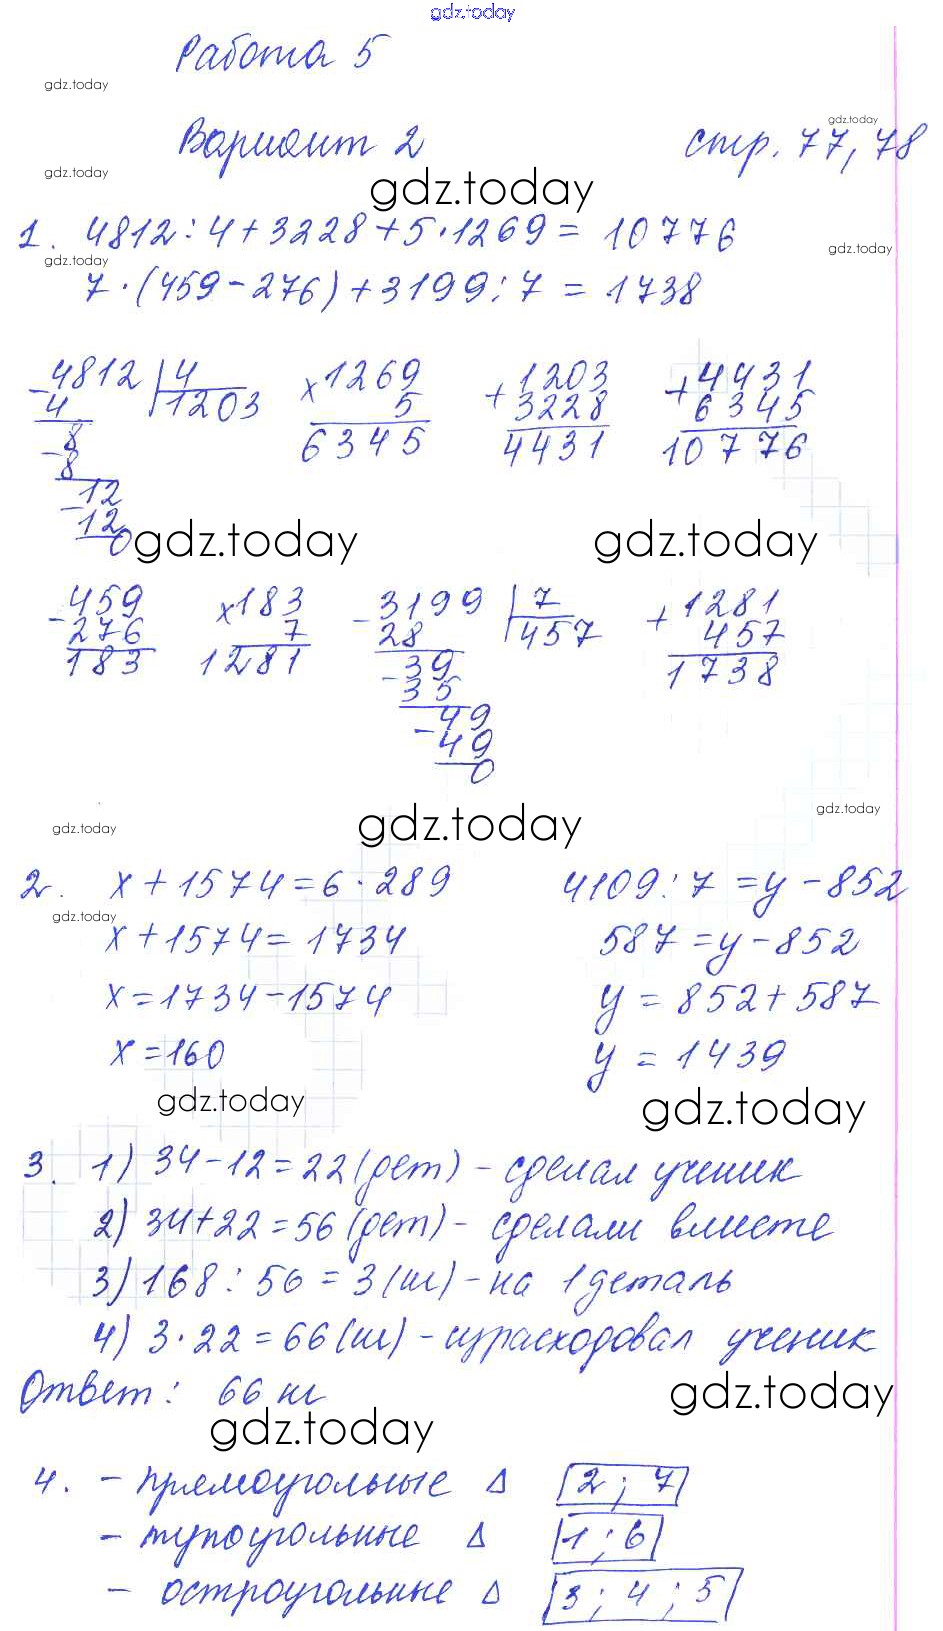 gdz.today
Работа 5
gdz.today
gdz.today
Вариант 2 стр. 77, 78
gdz.today
gdz.today
1. 4812 : 4 + 3228 + 5 · 1269 = 10776
gdz.today
gdz.today
7 · (459 - 276) + 3199 : 7 = 1738
- 4812 | 4 × 1269 + 1203 + 4431
4 1203 5 3228 6345
8 6345 4431 10776
- 8
- 12
12
0
gdz.today gdz.today
- 459 × 183 - 3199 | 7 + 1281
276 7 28 457 457
183 1281 - 39 1738
35
- 49
49
0
gdz.today
gdz.today
gdz.today
2. x + 1574 = 6 · 289 4109 : 7 = y - 852
gdz.today
x + 1574 = 1734 587 = y - 852
x = 1734 - 1574 y = 852 + 587
x = 160 y = 1439
gdz.today gdz.today
3. 1) 34 - 12 = 22 (дет) - сделал ученик
2) 34 + 22 = 56 (дет) - сделали вместе
3) 168 : 56 = 3 (кг) - на 1 деталь
4) 3 · 22 = 66 (кг) - израсходовал ученик
Ответ: 66 кг
gdz.today
gdz.today
4. - прямоугольные Δ 2; 7
- тупоугольные Δ 1; 6
- остроугольные Δ 3; 4; 5